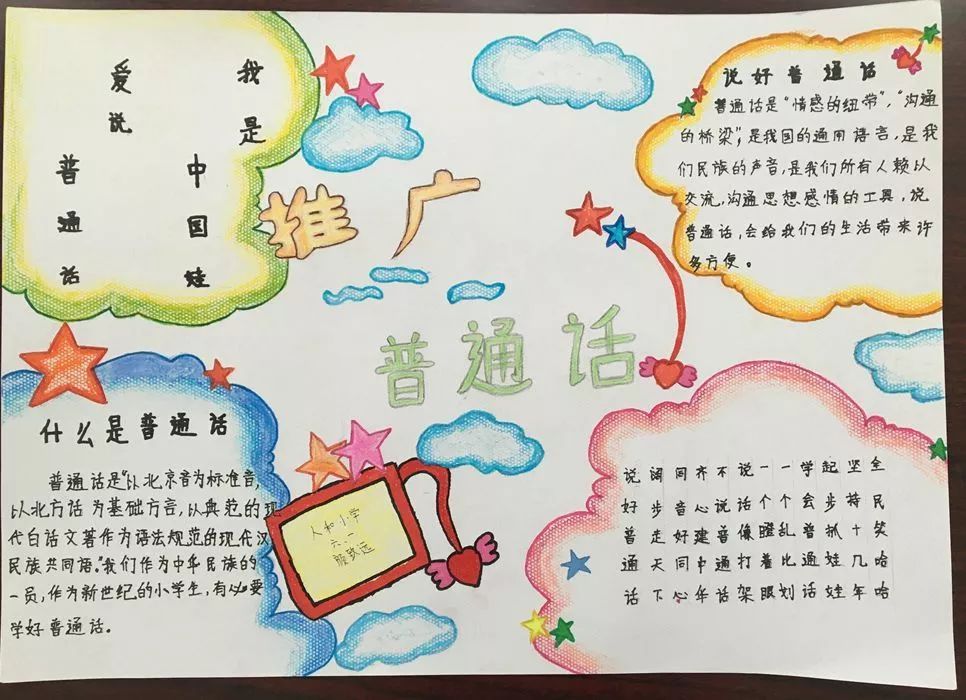 我是
中国娃
爱说
普通话
推广
普通话
说好普通话
普通话是“情感的纽带”,“沟通
的桥梁”,是我国的通用语言,是我
们民族的声音,是我们所有人赖以
交流,沟通思想感情的工具,说
普通话,会给我们的生活带来许
多方便。
什么是普通话
普通话是“以北京音为标准音,
以北方话为基础方言,以典范的现
代白话文著作为语法规范的现代汉
民族共同语。”我们作为中华民族的
一员,作为新世纪的小学生,有必要
学好普通话。
人和小学
六.一
致远
说好普通话
阔步走天下
同音好同心
齐心建中华
不说普通话
说话像打架
一个瞪着眼
一个乱比划
学会普通话
起步抓娃娃
坚持十几年
全民笑哈哈